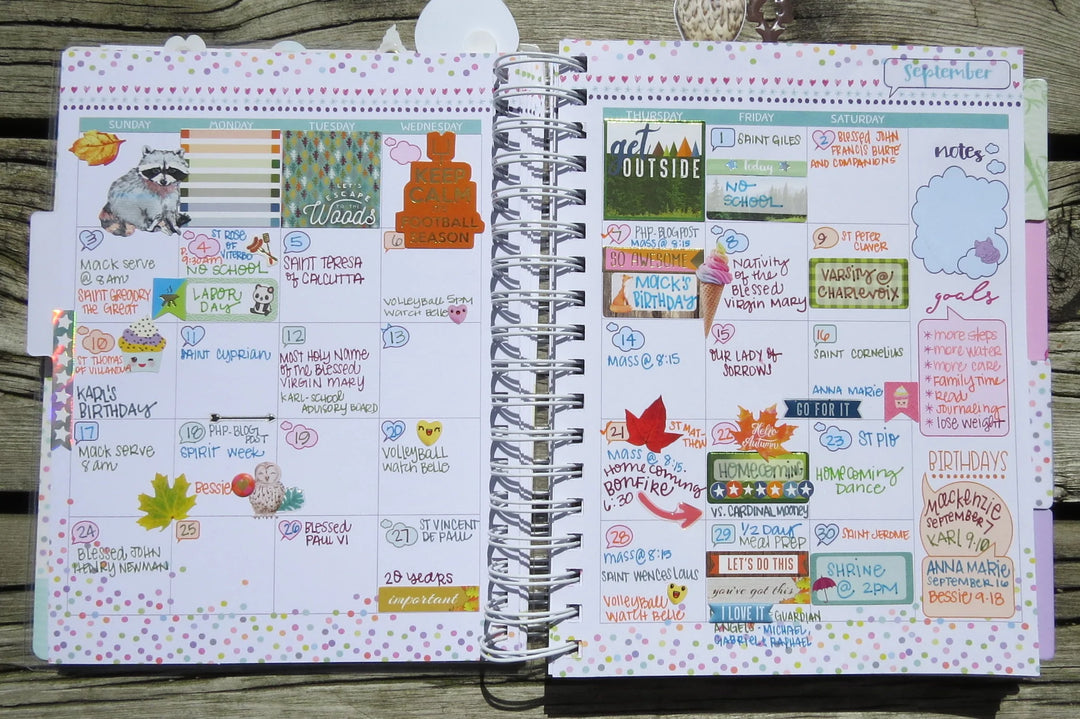 September
SUNDAY
MONDAY
TUESDAY
WEDNESDAY
THURSDAY
FRIDAY
SATURDAY
LET'S
ESCAPE
TO THE
Woods
KEEP
CALM
FOOTBALL
SEASON
get
OUTSIDE
1 SAINT GILES
Today
NO
SCHOOL
2 Blessed JOHN
FRANCIS BURTE
AND COMPANIONS
notes
3
Mack serve
@ 8am
SAINT GREGORY
THE GREAT
4 ST ROSE
OF
VITERBO
9:30AM
NO SCHOOL
LABOR
DAY
5
SAINT TERESA
of CALCUTTA
6
VOLLEYBALL 5PM
WATCH Belle
7 PHP-BLOGPOST
MASS @ 8:15
SO AWESOME
MACK'S
BIRTHDAY
8
Nativity
of the
Blessed
Virgin Mary
9 ST PETER
CLAVER
VARSITY @
CHARLEVOIX
goals
* more steps
* more water
* more care
* Family Time
* Read
* Journaling
* lose weight
10
ST THOMAS
OF VILLANOVA
KARL'S
BIRTHDAY
11
SAINT CYPRIAN
12
MOST HOLY NAME
OF THE BLESSED
VIRGIN MARY
KARL-SCHOOL
ADVISORY BOARD
13
14
MASS @ 8:15
15
OUR LADY OF
SORROWS
16
SAINT CORNELIUS
ANNA MARIE
GO FOR IT
17
Mack serve
8am
18 PHP-BLOG
POST
SPIRIT WEEK
Bessie
19
20
VOLLEYBALL
WATCH Belle
21 ST MAT-
THEW
MASS @ 8:15
HOMECOMING
BONFIRE
6:30
22
Hello
Autumn
HOMECOMING
VS. CARDINAL MOONEY
23 ST PIO
HOMECOMING
DANCE
BIRTHDAYS
MacKenzie
SEPTEMBER 7
KARL 9.10
ANNA MARIE
SEPTEMBER 16
Bessie 9.18
24
Blessed JOHN
HENRY NEWMAN
25
26 Blessed
PAUL VI
27 ST VINCENT
DE PAUL
20 years
important
28
mass @ 8:15
SAINT WENCESLAUS
VOLLEYBALL
WATCH Belle
29 1/2 DAY
MEAL PREP
LET'S DO THIS
you've got this
I LOVE IT GUARDIAN
ANGELS - MICHAEL,
GABRIEL & RAPHAEL
30 SAINT JEROME
SHRINE
@ 2PM